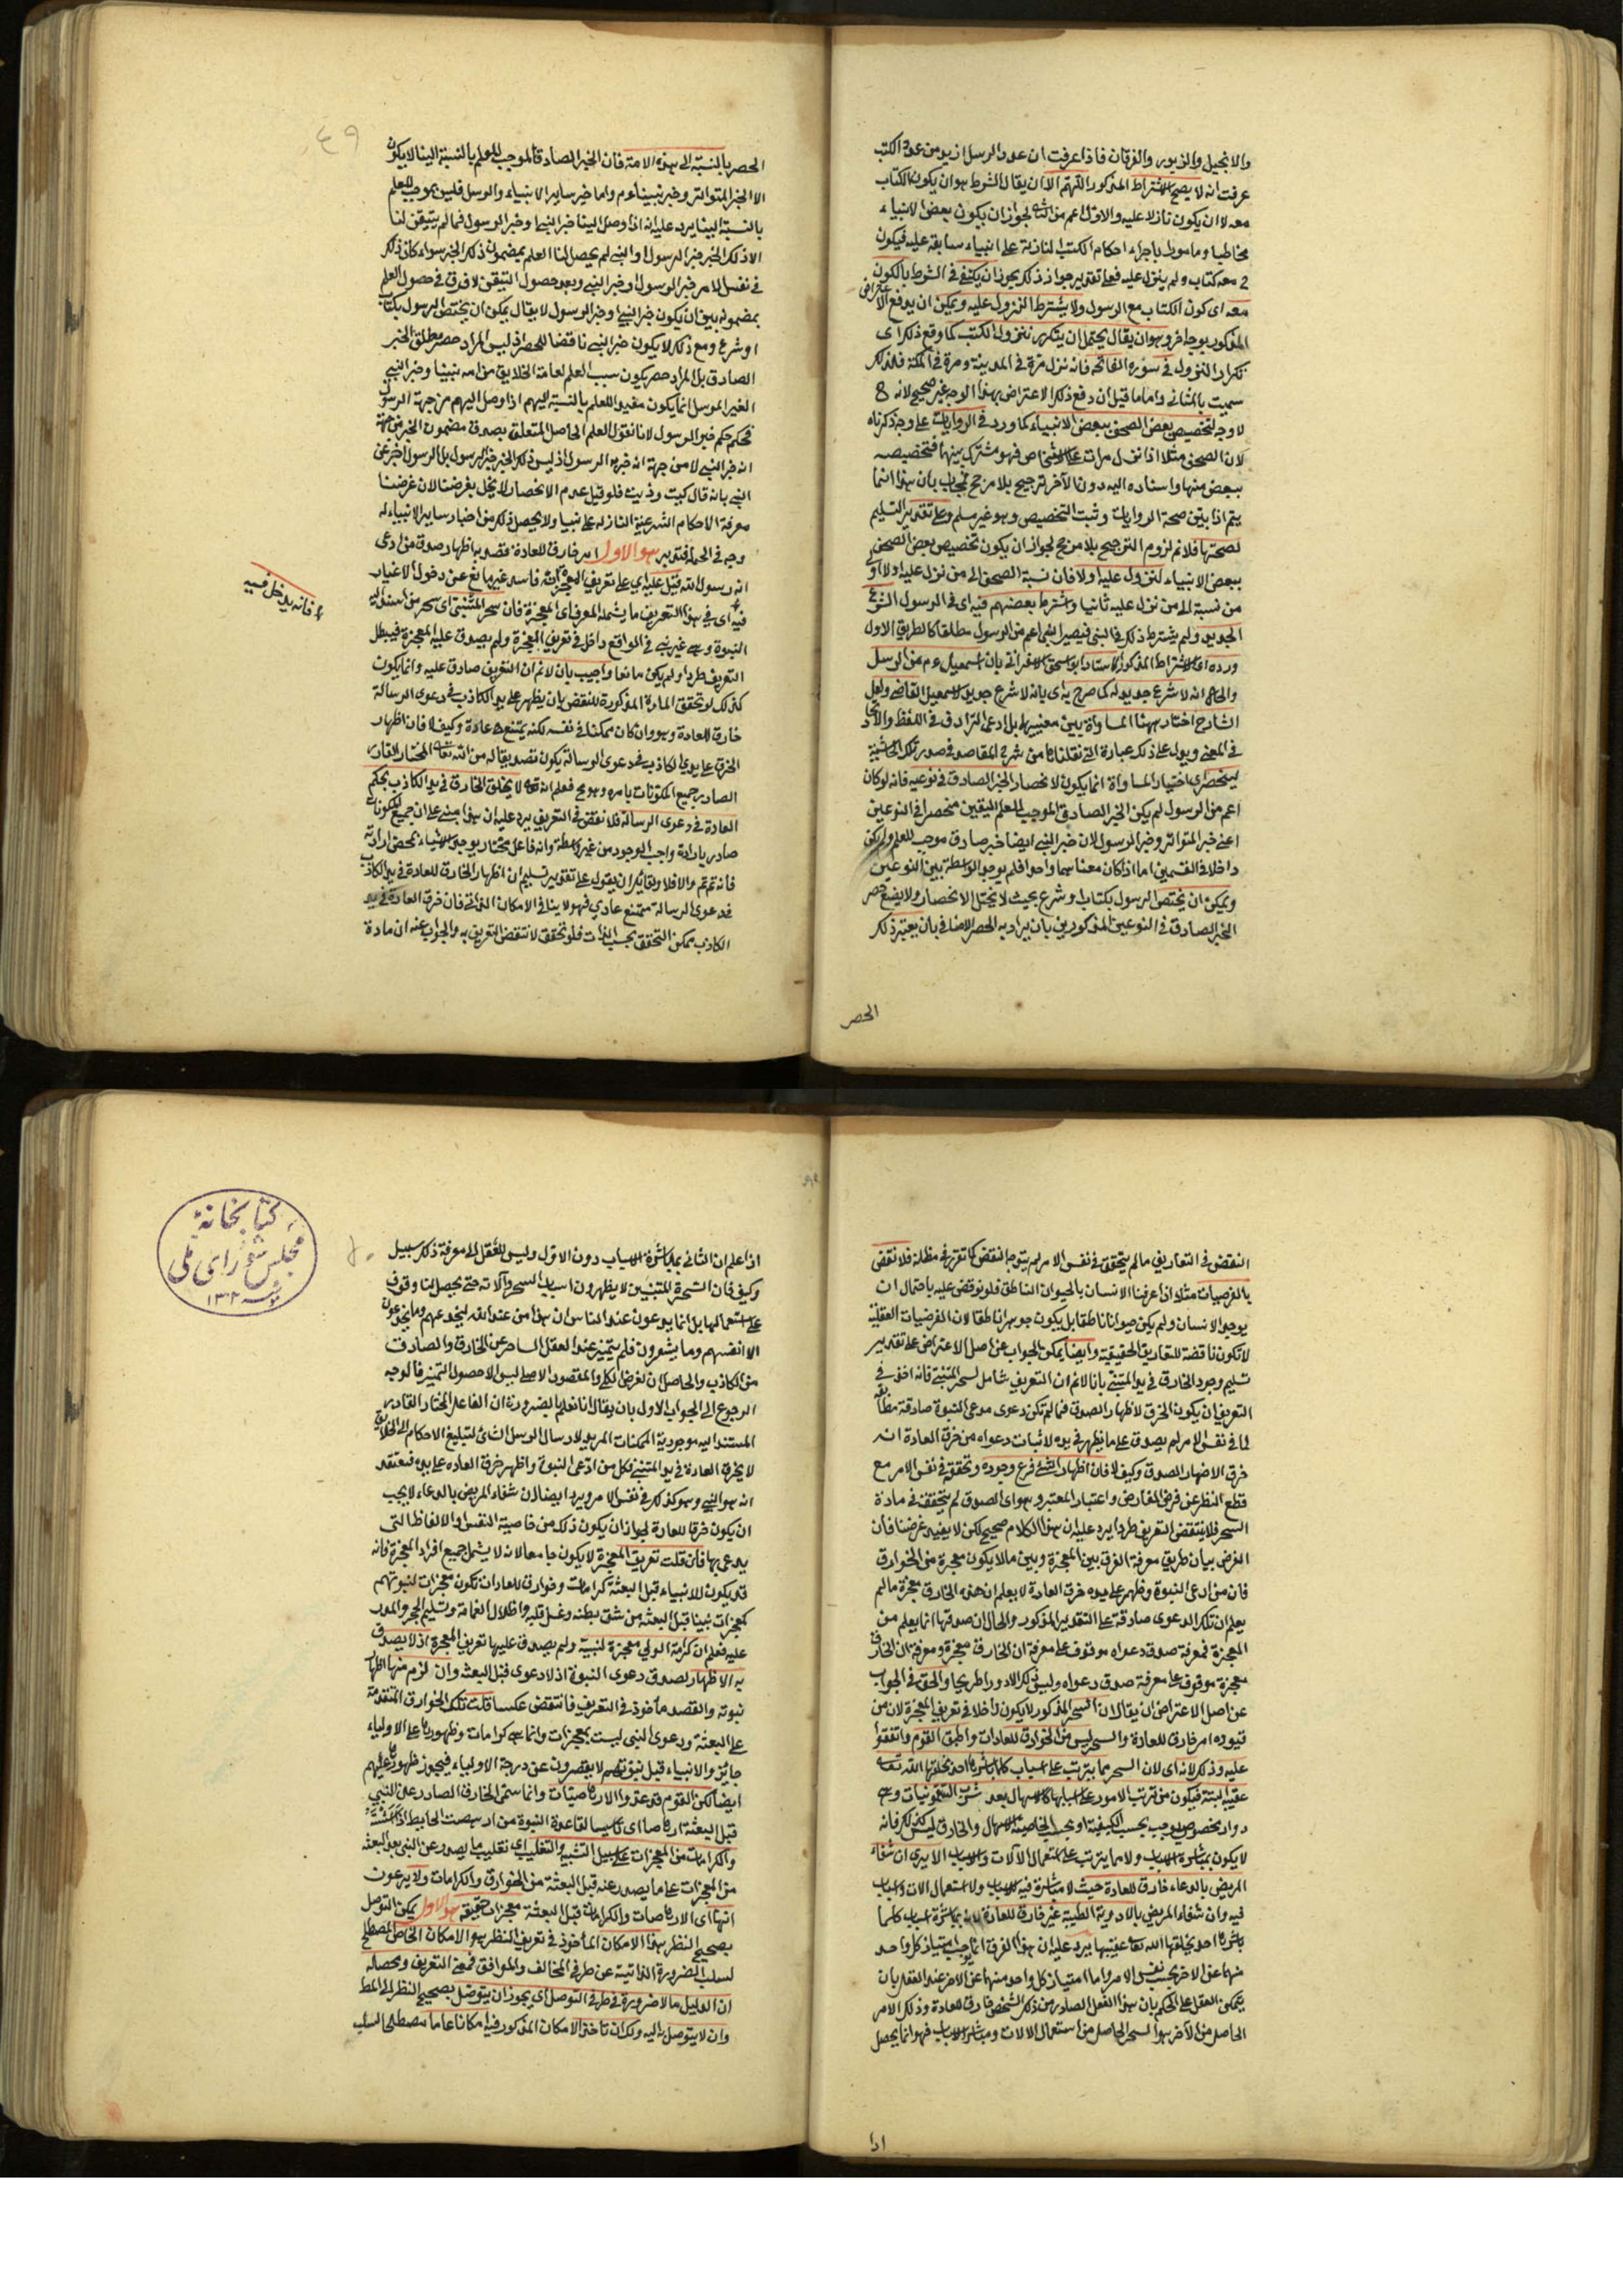 والانجيل والزبور والفرقان فاذا عرفت ان عدد الرسل ازيد من عدد الكتب
عرفت انه لا يصح الاشتراط المذكور اللهم الا ان يقال الشرط هو ان يكون الكتاب
معه لا ان يكون نازلا عليه والاول اعم من الثانى لجواز ان يكون بعض الانبياء
مخاطبا ومامورا باجراء احكام الكتب النازلة على انبياء سابقة عليه فيكون
ح معه كتاب ولم ينزل عليه فعلى تقدير جواز ذلك يجوز ان يكتفى فى الشرط بالكون
معه اى كون الكتاب مع الرسول ولا يشترط النزول عليه ويمكن ان يدفع الاعتراض
المذكور بوجه اخر وهو ان يقال يحتمل ان يتكرر نزول الكتب كما وقع ذلك اى
تكرار النزول فى سورة الفاتحة فانه نزل مرة فى المدينة ومرة فى المكة فلذلك
سميت بالمثانى واما ما قيل ان دفع ذلك الاعتراض بهذا الوجه غير صحيح لانه ح
لا وجه لتخصيص بعض الصحف ببعض الانبياء كما ورد فى الروايات على وجه ذكرناه
لان الصحف مثلا اذا نزل مرات على اشخاص فهو مشترك بينها فتخصيصه
ببعض منها واسناده اليه دون الآخر ترجيح بلا مرجح فمجاب بان هذا انما
يتم اذا بين صحة الروايات وثبت التخصيص وهو غير مسلم وعلى تقدير التسليم
لصحتها فلا نم لزوم الترجيح بلا مرجح لجواز ان يكون تخصيص بعض الصحف
ببعض الانبياء لنزول عليه اولا فان نسبة الصحف الى من نزل عليه اولا اولى
من نسبة الى من نزل عليه ثانيا واشترط بعضهم فيه اى فى الرسول الشرع
الجديد ولم يشترط ذلك فى النبى فيصير النبى اعم من الرسول مطلقا كالطريق الاول
ورده اى الاشتراط المذكور الاستاد ابو اسحق الاسفراني بان اسمعيل عم من الرسل
والحال انه لا شرع جديد له كما صرح به اى بانه لا شرع جديد لاسمعيل القاضى ولعل
الشارح اختار ههنا المساواة بين معنييهما بل ادعى الترادف فى اللفظ والاتحاد
فى المعنى ويدل على ذلك عبارة التى نقلناها من شرح المقاصد فى صدر تلك الحاشية
لينحصر اى اختيار المساواة انما يكون لانحصار الخبر الصادق فى نوعيه فانه لو كان
اعم من الرسول لم يكن الخبر الصادق الموجب للعلم اليقين منحصرا فى النوعين
اعنى خبر المتواتر وخبر الرسول لان خبر النبى ايضا خبر صادق موجب للعلم ولم يكن
داخلا فى القسمين اما اذا كان معناهما واحدا فلم يوجد الواسطة بين النوعين
ويمكن ان يختص الرسول بكتاب او شرع بحيث لا يختل الانحصار ولا يضيع حصر
الخبر الصادق فى النوعين المذكورين بان يراد به الحصر الاضافى بان يعتبر ذلك
الحصر
٤٩
الحصر بالنسبة الى هذه الامة فان الخبر الصادق الموجب للعلم بالنسبة الينا لا يكون
الا الخبر المتواتر وخبر نبينا عم واما خبر ساير الانبياء والرسل فليس بموجب للعلم
بالنسبة الينا يرد عليه انه اذا وصل الينا خبر النبى او خبر الرسول فما لم يتيقن لنا
الا ذلك الخبر خبر الرسول او النبى لم يحصل لنا العلم بمضمون ذلك الخبر سواء كان ذلك
فى نفس الامر خبر الرسول او خبر النبى وبعد حصول التيقن لا فرق فى حصول العلم
بمضمونه بين ان يكون خبر النبى او خبر الرسول لا يقال يمكن ان يختص الرسول بكتاب
او شرع ومع ذلك لا يكون خبر النبى ناقضا للحصر اذ ليس المراد حصر مطلق الخبر
الصادق بل المراد حصر يكون سبب العلم لعامة الخلايق من امة نبينا وخبر النبى
الغير المرسل انما يكون مفيدا للعلم بالنسبة اليهم اذا وصل اليهم من جهة الرسول
فحكم حكم خبر الرسول لانا نقول العلم الحاصل المتعلق بصدق مضمون الخبر من جهة
انه خبر النبى لا من جهة انه خبر به الرسول اذ ليس ذلك الخبر خبر الرسول بل الرسول اخبر عن
النبى بانه قال كيت وذيت فلو قيل عدم الانحصار لا يخل بغرضنا لان غرضنا
معرفة الاحكام الشرعية النازلة على نبينا ولا يحصل ذلك من اخبار ساير الانبياء له
وجه فى الجملة فتدبر هو الاول امر خارق للعادة قصد به اظهار صدق من ادعى
انه رسول الله قيل عليه اى على تعريف المعجزة انه فاسد غير مانع عن دخول الاغيار
فيه اى فى هذا التعريف ما يشمله المعرف اى المعجزة فان سحر المتنبى اى سحر من اسند اليه
النبوة وهى غير نبى فى الواقع داخل فى تعريف المعجزة ولم يصدق عليه المعجزة فيبطل
التعريف طردا ولم يكن مانعا واجيب بان لا نم ان التعريف صادق عليه وانما يكون
كذلك لو تحقق المادة المذكورة للنقض بان يظهر على يد الكاذب فى دعوى الرسالة
خارق للعادة وهو وان كان ممكنا فى نفسه لكنه يمتنع عادة وكيف لا فان اظهار
الخرق على يدى الكاذب فى دعوى الرسالة يكون تصديقا له من الله تعالى المختار القادر
الصادر جميع المكونات بامره وهو مح فعلم انه تعالى لا يخلق الخارق فى يد الكاذب بحكم
العادة فى دعوى الرسالة فلا نقض فى التعريف يرد عليه ان هذا مبنى على ان جميع المكونات
صادر بارادة واجب الوجود من غير واسطة وانه فاعل مختار يوجد الاشياء بمحض ارادته
فان تم تم والا فلا ولقائل ان يقول على تقدير تسليم ان اظهار الخارق للعادة فى يد الكاذب
فى دعوى الرسالة ممتنع عادى فهو لا ينافى الامكان الذاتى فان خرق العادة فى يد
الكاذب ممكن التحقق بحسب الذات فلو تحقق لانتقض التعريف به والجواب عنه ان مادة
فانه يدخل فيه
النقض فى التعاريف ما لم يتحقق فى نفس الامر لم يتوجه النقض كما تقرر فى مظانه فلا نقض
بالفرضيات مثلا اذا عرفنا الانسان بالحيوان الناطق فلو نوقض عليه باحتمال ان
يوجد الانسان ولم يكن حيوانا ناطقا بل يكون جوهرا ناطقا لان الفرضيات العقلية
لا تكون ناقضة للتعاريف الحقيقية وايضا يمكن الجواب عن اصل الاعتراض على تقدير
تسليم وجود الخارق فى يد المتنبى بانا لا نم ان التعريف شامل لسحر المتنبى فانه اخذ فى
التعريف ان يكون الخرق لاظهار الصدق فما لم تكن دعوى مدعى النبوة صادقة مطابقة
لما فى نفس الامر لم يصدق على ما يظهر فى يده لاثبات دعواه من خرق العادة انه
خرق لاظهار الصدق وكيف لا فان اظهار الشئ فرع وجوده وتحققه فى نفس الامر مع
قطع النظر عن فرض الفارض واعتبار المعتبر وهو اى الصدق لم يتحقق فى مادة
السحر فلا ينتقض التعريف طردا يرد عليه ان هذا الكلام صحيح لكن لا يفيد غرضنا فان
الغرض بيان طريق معرفة الفرق بين المعجزة وبين ما لا يكون معجزة من الخوارق
فان من ادعى النبوة وظهر على يده خرق العادة لا يعلم ان هذه الخارق معجزة ما لم
يعلم ان تلك الدعوى صادقة على التقدير المذكور والحال ان صدقها انما يعلم من
المعجزة فمعرفة صدق دعواه موقوف على معرفة ان الخارق معجزة ومعرفة ان الخارق
معجزة موقوف على معرفة صدق دعواه وليس ذلك الا دورا صريحا والحق فى الجواب
عن اصل الاعتراض ان يقال ان السحر المذكور لا يكون داخلا فى تعريف المعجزة لان من
قيوده امر خارق للعادة والسحر ليس من الخوارق للعادات واطبق القوم واتفقوا
عليه وذلك لانه اى لان السحر مما يترتب على اسباب كلما باشرها احد يخلقها الله تعالى
عقيبه البتة فيكون من ترتب الامور على اسبابها كالاسهال بعد شرب السقمونيات وهى
دواء مخصوص يوجب بحسب الكيفية او بحسب الخاصية الاسهال والخارق ليس كذلك فانه
لا يكون بمباشرة الاسباب ولا مما يترتب على استعمال الآلات والاسباب الا يرى ان شفاء
المريض بالدعاء خارق للعادة حيث لا مباشرة فيه للاسباب ولا استعمال الالات والاسباب
فيه وان شفاء المريض بالادوية الطبية غير خارق للعادة لانه بمباشرة اسباب كلما
باشرها احد يخلقها الله تعالى عقيبها يرد عليه ان هذا الفرق انما يوجب امتياز كل واحد
منهما عن الاخر بحسب نفس الامر واما امتياز كل واحد منهما عن الاخر عند العقل بان
يتمكن العقل على الحكم بان هذا الفعل الصادر من ذلك الشخص خارق للعادة وذلك الامر
الحاصل من الآخر هو السحر الحاصل من استعمال الالات ومباشرة الاسباب فهو انما يحصل
اذا
٥٠
كتابخانهٔ
مجلس شورای ملی
١٣٠٢
اذا علم ان الثانى بمباشرة الاسباب دون الاول وليس للعقل الى معرفة ذلك سبيل
وكيف فان السحرة المتنبيين لا يظهرون اسباب السحر وآلاته حتى يحصل لنا وقوف
على استعمالها بل انما يدعون عند الناس ان هذا من عند الله ليخدعهم وما يخدعون
الا انفسهم وما يشعرون فلم يتميز عند العقل الساحر عن الخارق والصادق
من الكاذب والحاصل ان الغرض الكلى والمقصود الاصلى ليس الا حصول التميز فالوجه
الرجوع الى الجواب الاول بان يقال انا نعلم بالضرورة ان الفاعل المختار القادر
المستند اليه موجودية الممكنات المريد لارسال الرسل انما لتبليغ الاحكام الى الخلايق
لا يخرق العادة فى يد المتنبى فكل من ادعى النبوة واظهر خرق العادة على يده فنعتقد
انه هو النبى وهو كذلك فى نفس الامر ويرد ايضا ان شفاء المريض بالدعاء لا يجب
ان يكون خرقا للعادة لجواز ان يكون ذلك من خاصية النفس او الالفاظ التى
يدعى بها فان قلت تعريف المعجزة لا يكون جامعا لانه لا يشمل جميع افراد المعجزة فانه
قد يكون للانبياء قبل البعثة كرامات وخوارق للعادات تكون معجزات لنبوتهم
كمعجزات نبينا قبل البعثة من شق بطنه وغسل قلبه واظلال الغمامة وتسليم الحجر والمدر
عليه فعلم ان كرامة الولى معجزة لنبيه ولم يصدق عليها تعريف المعجزة اذ لا يصدق
به الاظهار لصدق دعوى النبوة اذ لا دعوى قبل البعثة وان لزم منها اظهار
نبوته والقصد مأخوذ فى التعريف فانتقض عكسا قلت تلك الخوارق المتقدمة
على البعثة ودعوى النبى ليست بمعجزات وانما هى كرامات وظهورها على الاولياء
جائز والانبياء قبل نبوتهم لا يقصرون عن درجة الاولياء فيجوز ظهورها عليهم
ايضا لكن القوم قد عدوا الارهاصيات وانما سمى الخارق الصادر عن النبى
قبل البعثة ارهاصا اى تاسيسا لقاعدة النبوة من ارهصت الحايط اذا اسسته
والكرامات من المعجزات على سبيل التشبيه والتغليب اى تغليب ما يصدر عن النبى بعد البعثة
من المعجزات على ما يصدر عنه قبل البعثة من الخوارق والكرامات ولا يدعون
انها اى الارهاصات والكرامات قبل البعثة معجزات حقيقة هو الاول يمكن التوصل
بصحيح النظر هذا الامكان المأخوذ فى تعريف النظر هو الامكان الخاص المصطلح
لسلب الضرورة الذاتية عن طرفى المخالف والموافق فمعنى التعريف ومحصله
ان الدليل ما لا ضرورة فى طرفى التوصل اى يجوز ان يتوصل بصحيح النظر الى المط
وان لا يتوصل به اليه ولك ان تأخذ الامكان المذكور فيه امكانا عاما مصطلحا لسلب